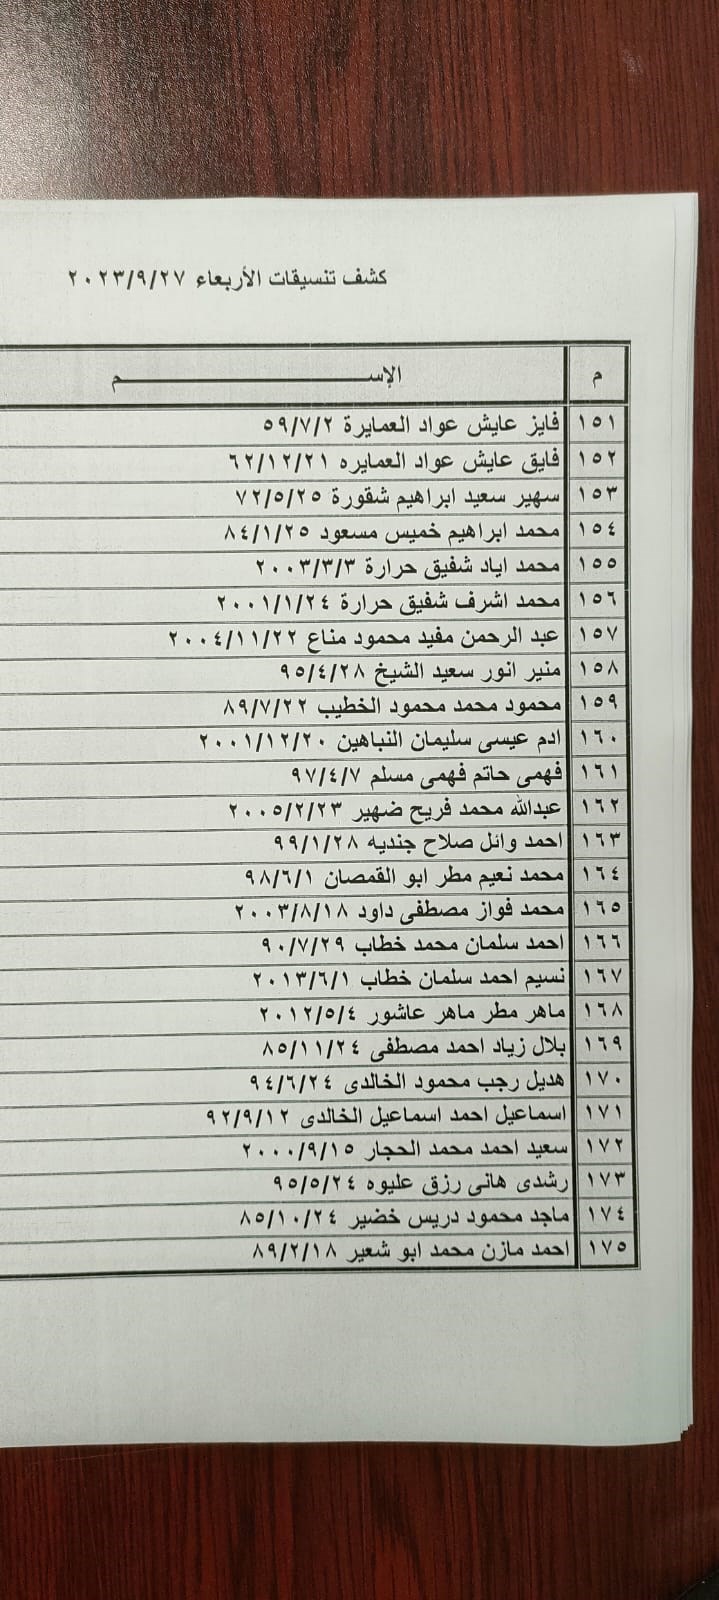 كشف تنسيقات الأربعاء ٢٠٢٣/٩/٢٧
م الإســـــــــــــــم
١٥١ فايز عايش عواد العمايرة ٥٩/٧/٢
١٥٢ فايق عايش عواد العمايره ٦٢/١٢/٢١
١٥٣ سهير سعيد ابراهيم شقورة ٧٢/٥/٢٥
١٥٤ محمد ابراهيم خميس مسعود ٨٤/١/٢٥
١٥٥ محمد اياد شفيق حرارة ٢٠٠٣/٣/٣
١٥٦ محمد اشرف شفيق حرارة ٢٠٠١/١/٢٤
١٥٧ عبد الرحمن مفيد محمود مناع ٢٠٠٤/١١/٢٢
١٥٨ منير انور سعيد الشيخ ٩٥/٤/٢٨
١٥٩ محمود محمد محمود الخطيب ٨٩/٧/٢٢
١٦٠ ادم عيسى سليمان النباهين ٢٠٠١/١٢/٢٠
١٦١ فهمى حاتم فهمى مسلم ٩٧/٤/٧
١٦٢ عبدالله محمد فريح ضهير ٢٠٠٥/٢/٢٣
١٦٣ احمد وائل صلاح جنديه ٩٩/١/٢٨
١٦٤ محمد نعيم مطر ابو القمصان ٩٨/٦/١
١٦٥ محمد فواز مصطفى داود ٢٠٠٣/٨/١٨
١٦٦ احمد سلمان محمد خطاب ٩٠/٧/٢٩
١٦٧ نسيم احمد سلمان خطاب ٢٠١٣/٦/١
١٦٨ ماهر مطر ماهر عاشور ٢٠١٢/٥/٤
١٦٩ بلال زياد احمد مصطفى ٨٥/١١/٢٤
١٧٠ هديل رجب محمود الخالدى ٩٤/٦/٢٤
١٧١ اسماعيل احمد اسماعيل الخالدى ٩٢/٩/١٢
١٧٢ سعيد احمد محمد الحجار ٢٠٠٠/٩/١٥
١٧٣ رشدى هانى رزق عليوه ٩٥/٥/٢٤
١٧٤ ماجد محمود دريس خضير ٨٥/١٠/٢٤
١٧٥ احمد مازن محمد ابو شعير ٨٩/٢/١٨